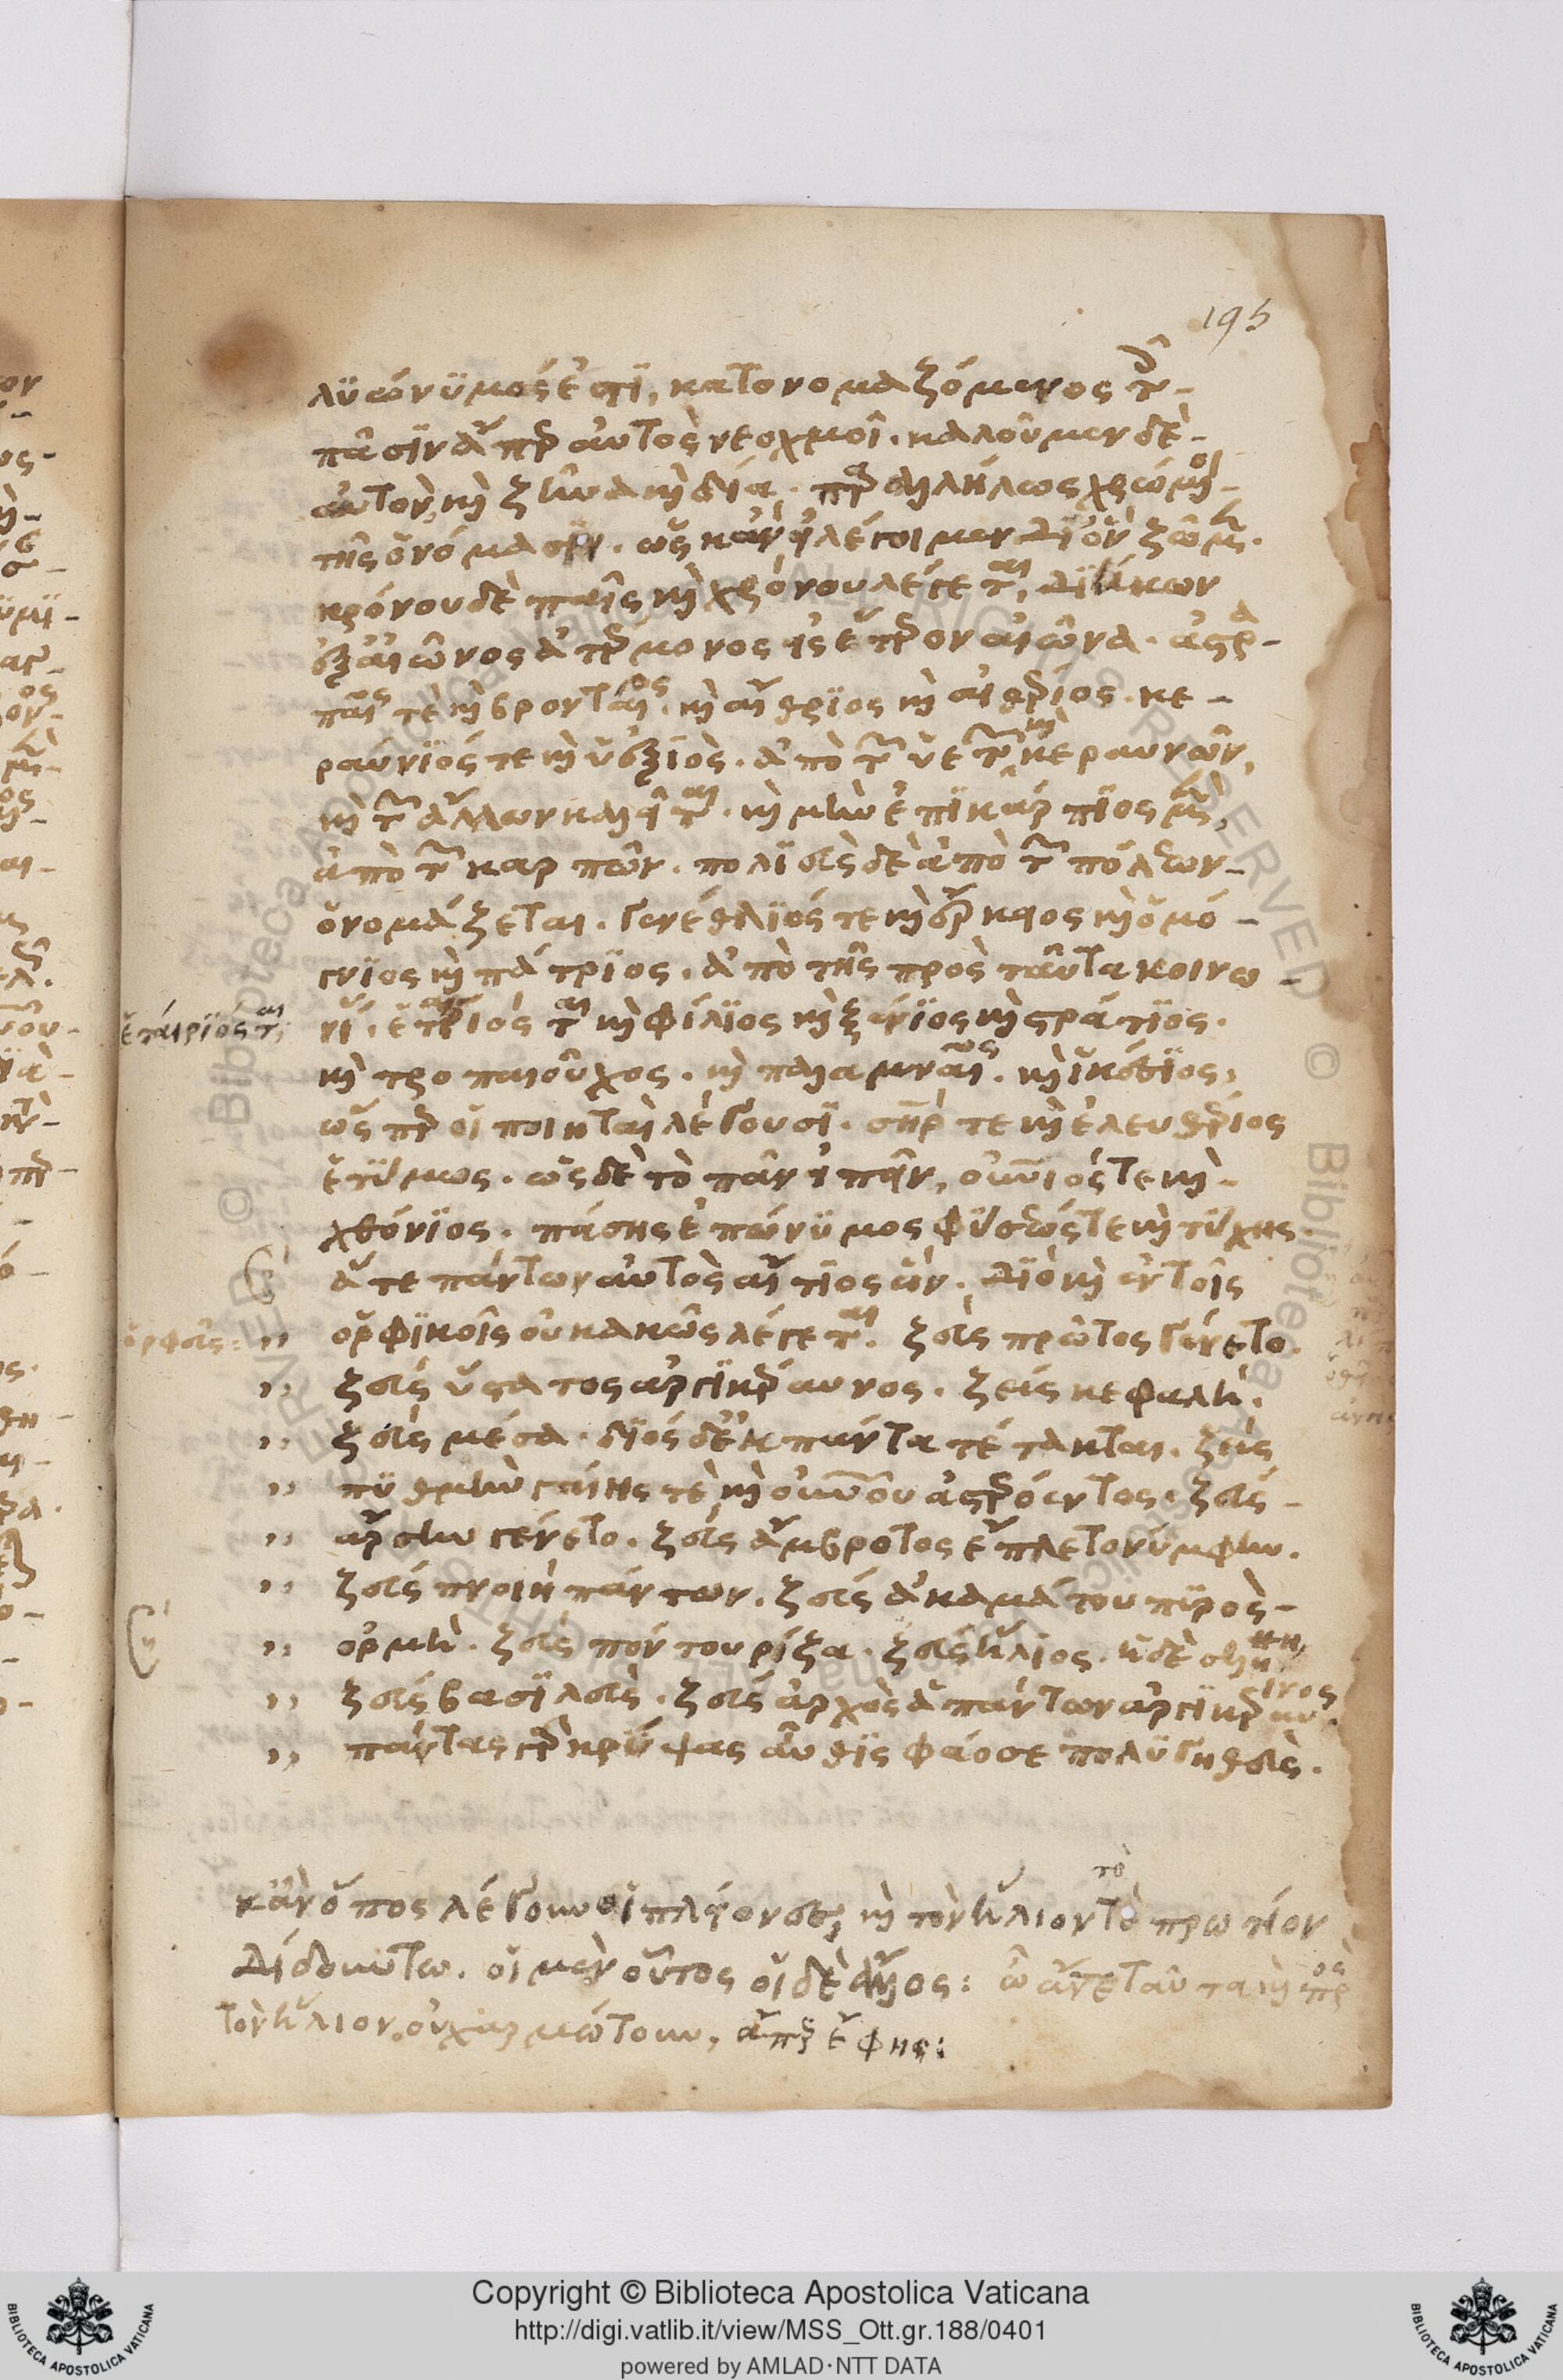 195
λυώνυμός ἐστι, κατονομαζόμενος τοῖς
πᾶσιν ἅπερ αὐτὸς νεοχμοῖ. καλοῦμεν δὲ
αὐτὸν καὶ ζῆνα καὶ δία. παραλλήλως χρώμενοι
τοῖς ὀνόμασιν. ὡς κἂν εἰ λέγοιμεν δι' ὃν ζῶμεν.
κρόνου δὲ παῖς καὶ χρόνου λέγεται, διήκων
ἐξ αἰῶνος ἀτέρμονος εἰς ἕτερον αἰῶνα. ἀστρα
παῖός τε καὶ βρονταῖος. καὶ αἴθριος καὶ αἰθέριος. κε
ραύνιός τε καὶ ὑέτιος. ἀπὸ τῶν ὑετῶν καὶ κεραυνῶν,
καὶ τῶν ἄλλων καλεῖται. καὶ μὴν ἐπικάρπιος μὲν,
ἀπὸ τῶν καρπῶν. πολιεὺς δὲ ἀπὸ τῶν πόλεων
ὀνομάζεται. γενέθλιός τε καὶ ἕρκειος καὶ ὁμό
γνιος καὶ πάτριος. ἀπὸ τῆς πρὸς ταῦτα κοινω
ἑταίριός τε
νί. ἑταίριός τε καὶ φίλιος καὶ ξένιος καὶ στράτιος.
καὶ τροπαιοῦχος. καὶ παλαμναῖος. καὶ ἱκέσιος,
ὥσπερ οἱ ποιηταὶ λέγουσι. σωτήρ τε καὶ ἐλευθέριος
ἐτύμως. ὡς δὲ τὸ πᾶν εἰπεῖν, οὐράνιός τε καὶ
χθόνιος. πάσης ἐπώνυμος φύσεώς τε καὶ τύχης.
ἅτε πάντων αὐτὸς αἴτιος ὤν. διὸ καὶ ἐν τοῖς
ὀρφεύς:
ὀρφικοῖς οὐ κακῶς λέγεται. ζεὺς πρῶτος γένετο.
ζεὺς ὕστατος ἀργικέραυνος. ζεὺς κεφαλή.
ζεὺς μέσα. διὸς δ' ἐκ πάντα τέτακται. ζεὺς
πυθμὴν γαίης τὲ καὶ οὐρανοῦ ἀστερόεντος. ζεὺς
ἄρσην γένετο. ζεὺς ἄμβροτος ἔπλετο νύμφη.
ζεὺς πνοιὴ πάντων. ζεὺς ἀκαμάτου πυρὸς
ὁρμή. ζεὺς πόντου ρίζα. ζεὺς ἥλιος. ἠδὲ σελήνη
ζεὺς βασιλεὺς. ζεὺς ἀρχὸς ἁπάντων ἀργικέραυνος
πάντας γὰρ κρύψας αὖθις φάος ἐς πολυγηθὲς.
λέγουσιν
οἱ μὲν οὕτως οἱ δὲ ἄλλως:
τὸν ἥλιον. ἅπερ ἔφης:
Copyright © Biblioteca Apostolica Vaticana
http://digi.vatlib.it/view/MSS_Ott.gr.188/0401
powered by AMLAD·NTT DATA
BIBLIOTECA APOSTOLICA VATICANA
BIBLIOTECA APOSTOLICA VATICANA